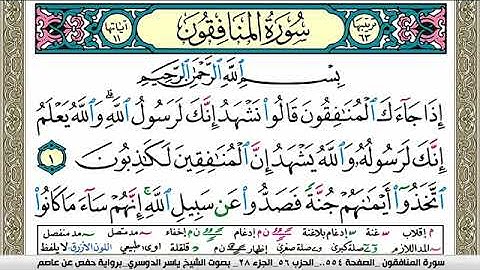 ترتيبها ٦٣
سُورَةُ المُنَافِقُونَ
آياتها ١١
بِسْمِ اللَّهِ الرَّحْمَٰنِ الرَّحِيمِ
إِذَا جَآءَكَ ٱلْمُنَٰفِقُونَ قَالُوا۟ نَشْهَدُ إِنَّكَ لَرَسُولُ ٱللَّهِ ۗ وَٱللَّهُ يَعْلَمُ
إِنَّكَ لَرَسُولُهُۥ وَٱللَّهُ يَشْهَدُ إِنَّ ٱلْمُنَٰفِقِينَ لَكَٰذِبُونَ ١
ٱتَّخَذُوٓا۟ أَيْمَٰنَهُمْ جُنَّةً فَصَدُّوا۟ عَن سَبِيلِ ٱللَّهِ ۚ إِنَّهُمْ سَآءَ مَا كَانُوا۟
م إقلاب غنة إدغام بلاغنة إدغام إخفاء مد متصل مد منفصل
المد اللازم صلة كبرى وصلة صغرى إظهار قلقلة طبيعي اللون الأزرق لا يلفظ
سورة المنافقون _الصفحة ٥٥٤_ الحزب ٥٦_الجزء ٢٨_ بصوت الشيخ ياسر الدوسري_برواية حفص عن عاصم